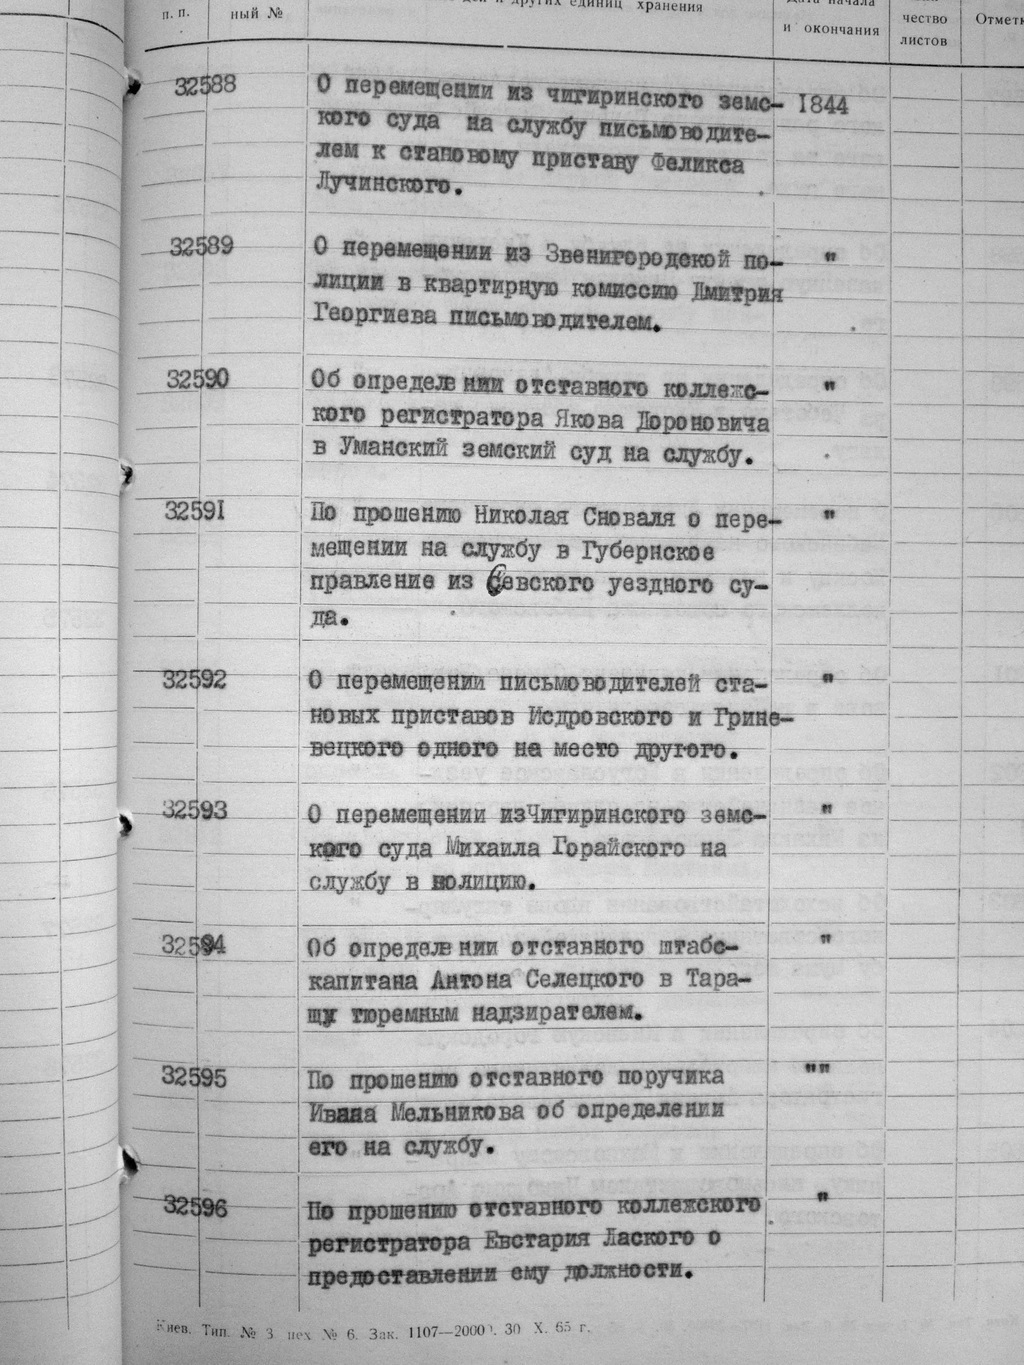 п. п.
ный №
и других единиц хранения
Дата начала
и окончания
чество
листов
32588
О перемещении из чигиринского земс-
1844
кого суда на службу письмоводите-
лем к становому приставу Феликса
Лучинского.
32589
О перемещении из Звенигородской по-
"
лиции в квартирную комиссию Дмитрия
Георгиева письмоводителем.
32590
Об определении отставного коллежс-
"
кого регистратора Якова Дороновича
в Уманский земский суд на службу.
32591
По прошению Николая Сноваля о пере-
"
мещении на службу в Губернское
правление из Севского уездного су-
да.
32592
О перемещении письмоводителей ста-
"
новых приставов Исдровского и Грине-
вецкого одного на место другого.
32593
О перемещении изЧигиринского земс-
"
кого суда Михаила Горайского на
службу в полицию.
32594
Об определении отставного штабс-
"
капитана Антона Селецкого в Тара-
щу тюремным надзирателем.
32595
По прошению отставного поручика
""
Ивана Мельникова об определении
его на службу.
32596
По прошению отставного коллежского
"
регистратора Евстария Лаского о
предоставлении ему должности.
Киев. Тип. № 3 цех № 6. Зак. 1107—2000. 30 X. 65 г.